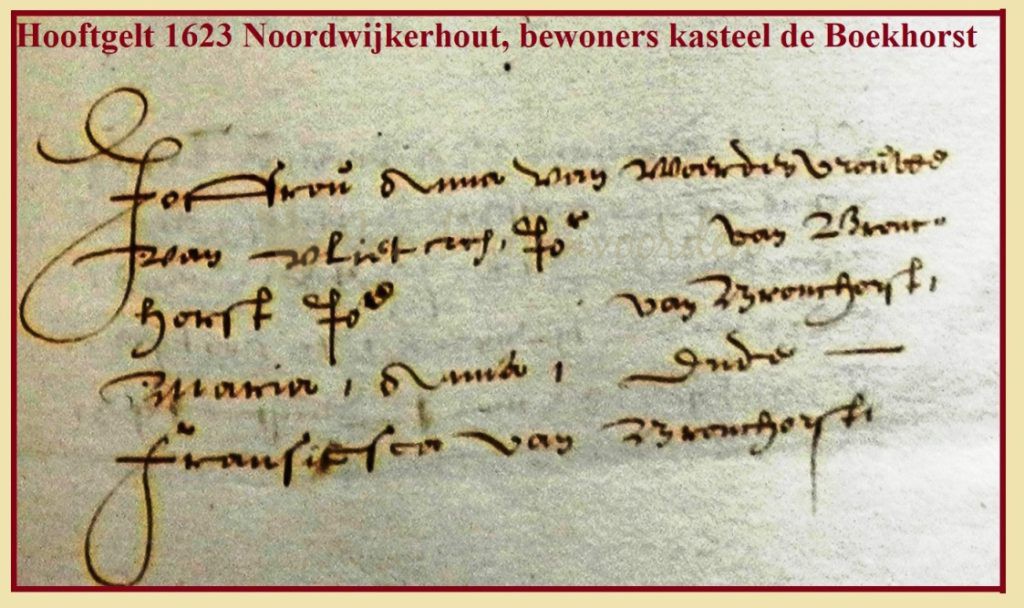 Hooftgelt 1623 Noordwijkerhout, bewoners kasteel de Boekhorst
Joffrou Anna van Woerden vrouwe
van Vliet etc, Jor van Bronc-
horst Jor van Bronchorst,
Maria, Anna, Ende
fransisca van Bronchorst